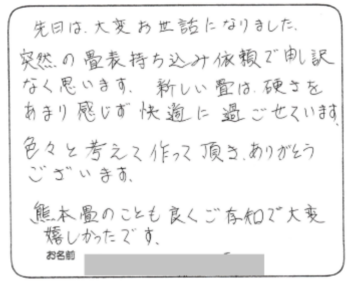 先日は、大変お世話になりました。
突然の畳表持ち込み依頼で申し訳
なく思います。 新しい畳は、硬さを
あまり感じず快適に過ごせています。
色々と考えて作って頂き、ありがとう
ございます。
熊本畳のことも良くご存知で大変
嬉しかったです。
お名前